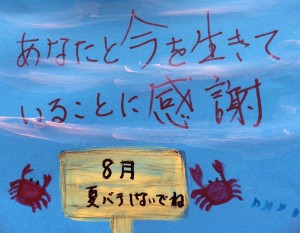 あなたと今を生きて
いることに感謝
8月
夏バテしないでね